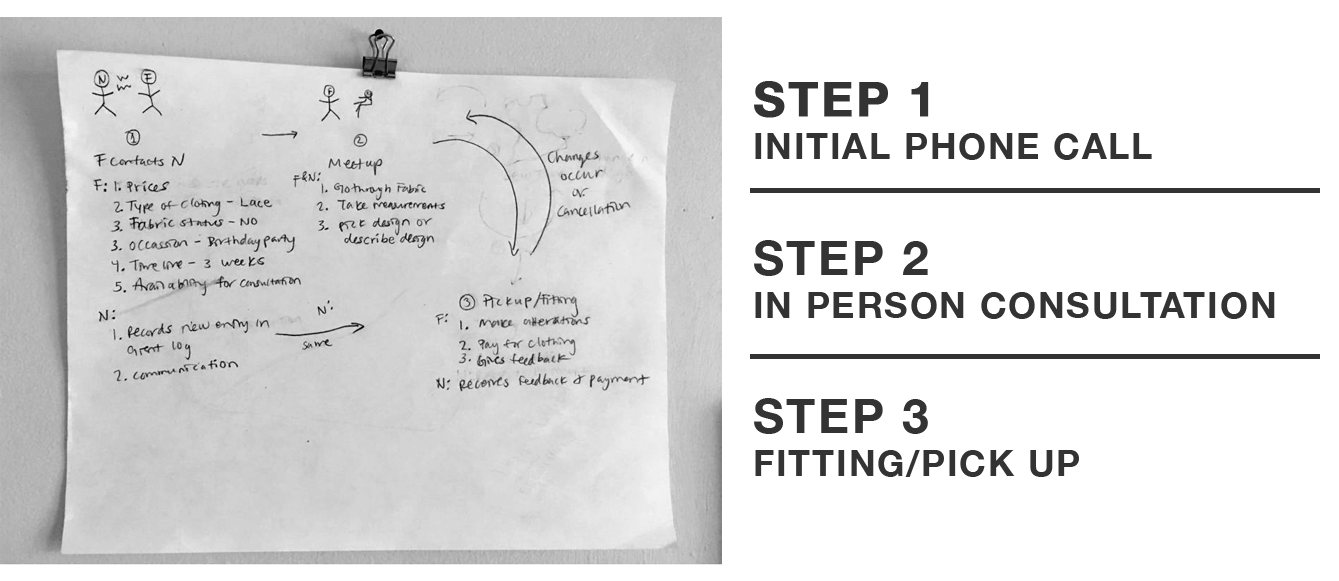 N
F
①
F contacts N
F: 1. Prices
2. Type of cloting - Lace
3. Fabric status - NO
3. Occassion - Birthday party
4. Timeline - 3 weeks
5. Availability for consultation
N:
1. Records new entry in
client log
2. communication
N:
same
F
②
Meetup
F&N:
1. Go through Fabric
2. Take measurements
3. pick design or
describe design
Changes
occur
or
cancellation
③ Pickup/fitting
F:
1. Make alterations
2. Pay for clothing
3. Gives feedback
N: Receives feedback & payment
STEP 1
INITIAL PHONE CALL
STEP 2
IN PERSON CONSULTATION
STEP 3
FITTING/PICK UP